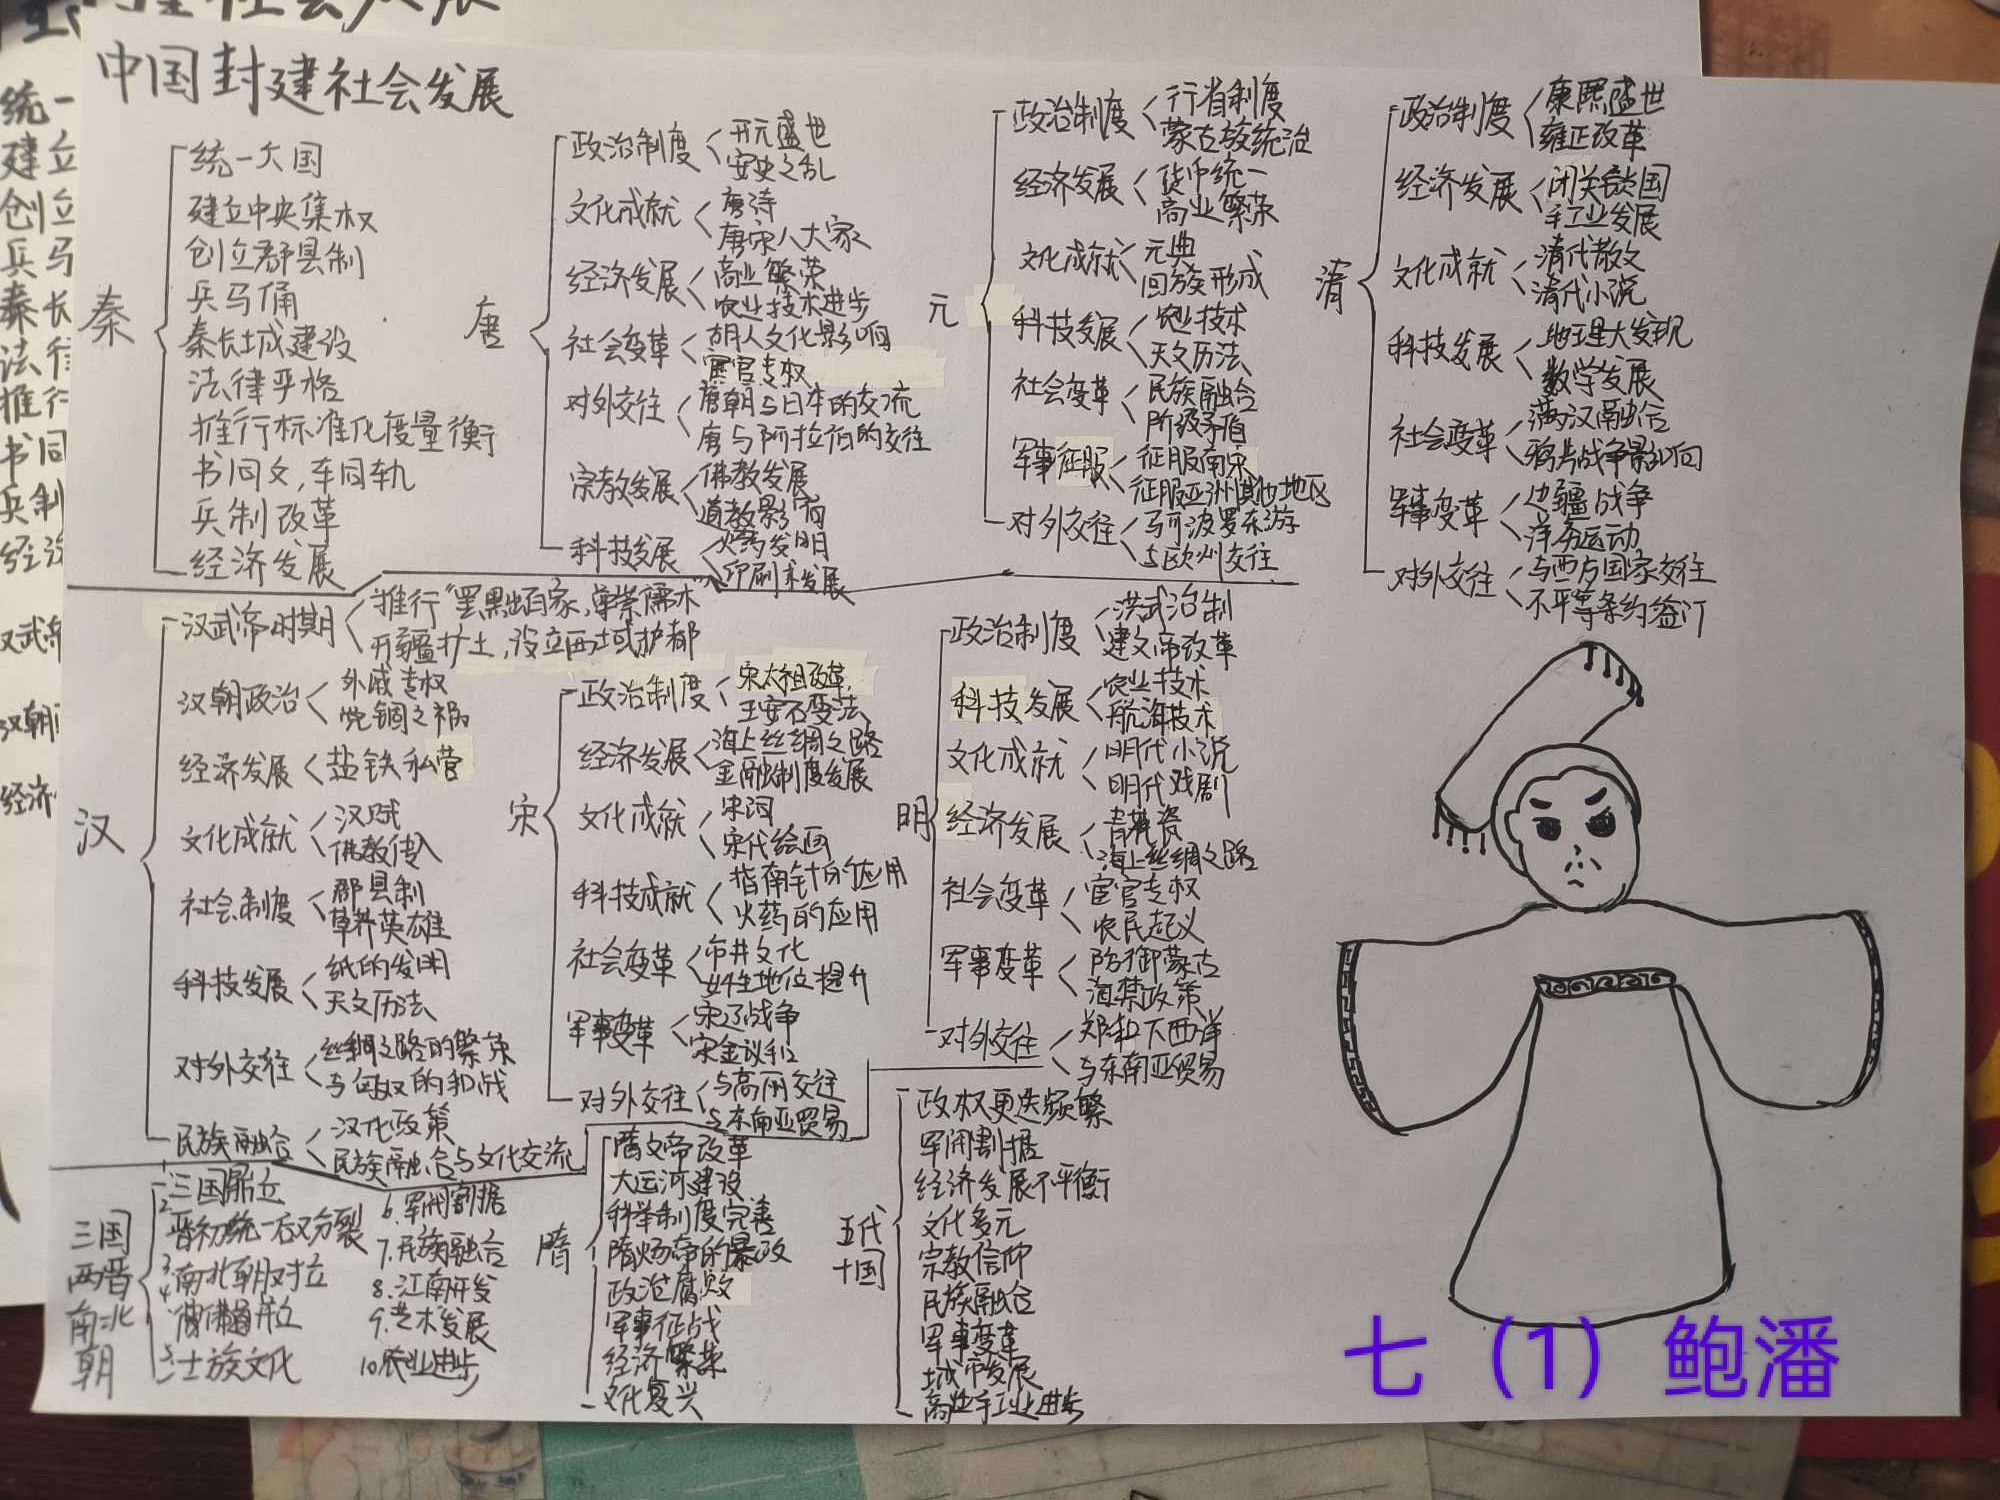 中国封建社会发展
秦
统一大国
建立中央集权
创立郡县制
兵马俑
秦长城建设
法律严格
推行标准化度量衡
书同文,车同轨
兵制改革
经济发展
汉
汉武帝时期
推行“罢黜百家,尊崇儒术”
开疆扩土,设立西域护都
汉朝政治
外戚专权
党锢之祸
经济发展
盐铁私营
文化成就
汉赋
佛教传入
社会制度
郡县制
草莽英雄
科技发展
纸的发明
天文历法
对外交往
丝绸之路的繁荣
与匈奴的和战
民族融合
汉化政策
民族融合与文化交流
三国
两晋
南北
朝
三国鼎立
2.晋初统一后又分裂
3.南北朝对立
4.
5.士族文化
6.军阀割据
7.民族融合
8.江南开发
9.艺术发展
10.农业进步
唐
政治制度
开元盛世
安史之乱
文化成就
唐诗
唐宋八大家
经济发展
商业繁荣
农业技术进步
社会变革
胡人文化影响
宦官专权
对外交往
唐朝与日本的交流
唐与阿拉伯的交往
宗教发展
佛教发展
道教影响
科技发展
火药发明
印刷术发展
宋
政治制度
宋太祖改革
王安石变法
经济发展
海上丝绸之路
金融制度发展
文化成就
宋词
宋代绘画
科技成就
指南针的应用
火药的应用
社会变革
市井文化
女性地位提升
军事变革
宋辽战争
宋金议和
对外交往
与高丽交往
与东南亚贸易
隋
隋文帝改革
大运河建设
科举制度完善
隋炀帝的暴政
政治腐败
军事征战
经济繁荣
文化复兴
元
政治制度
行省制度
蒙古族统治
经济发展
货币统一
商业繁荣
文化成就
元典
回族形成
科技发展
农业技术
天文历法
社会变革
民族融合
阶级矛盾
军事征服
征服南宋
征服亚洲其他地区
对外交往
马可波罗东游
与欧州交往
明
政治制度
洪武治制
建文帝改革
科技发展
农业技术
航海技术
文化成就
明代小说
明代戏剧
经济发展
青花瓷
海上丝绸之路
社会变革
宦官专权
农民起义
军事变革
防御蒙古
海禁政策
对外交往
郑和下西洋
与东南亚贸易
五代
十国
政权更迭频繁
军阀割据
经济发展不平衡
文化多元
宗教信仰
民族融合
军事变革
城市发展
商业手工业进步
清
政治制度
康熙盛世
雍正改革
经济发展
闭关锁国
手工业发展
文化成就
清代散文
清代小说
科技发展
地理大发现
数学发展
社会变革
满汉融合
鸦片战争影响
军事变革
边疆战争
洋务运动
对外交往
与西方国家交往
不平等条约签订
七（1）鲍潘